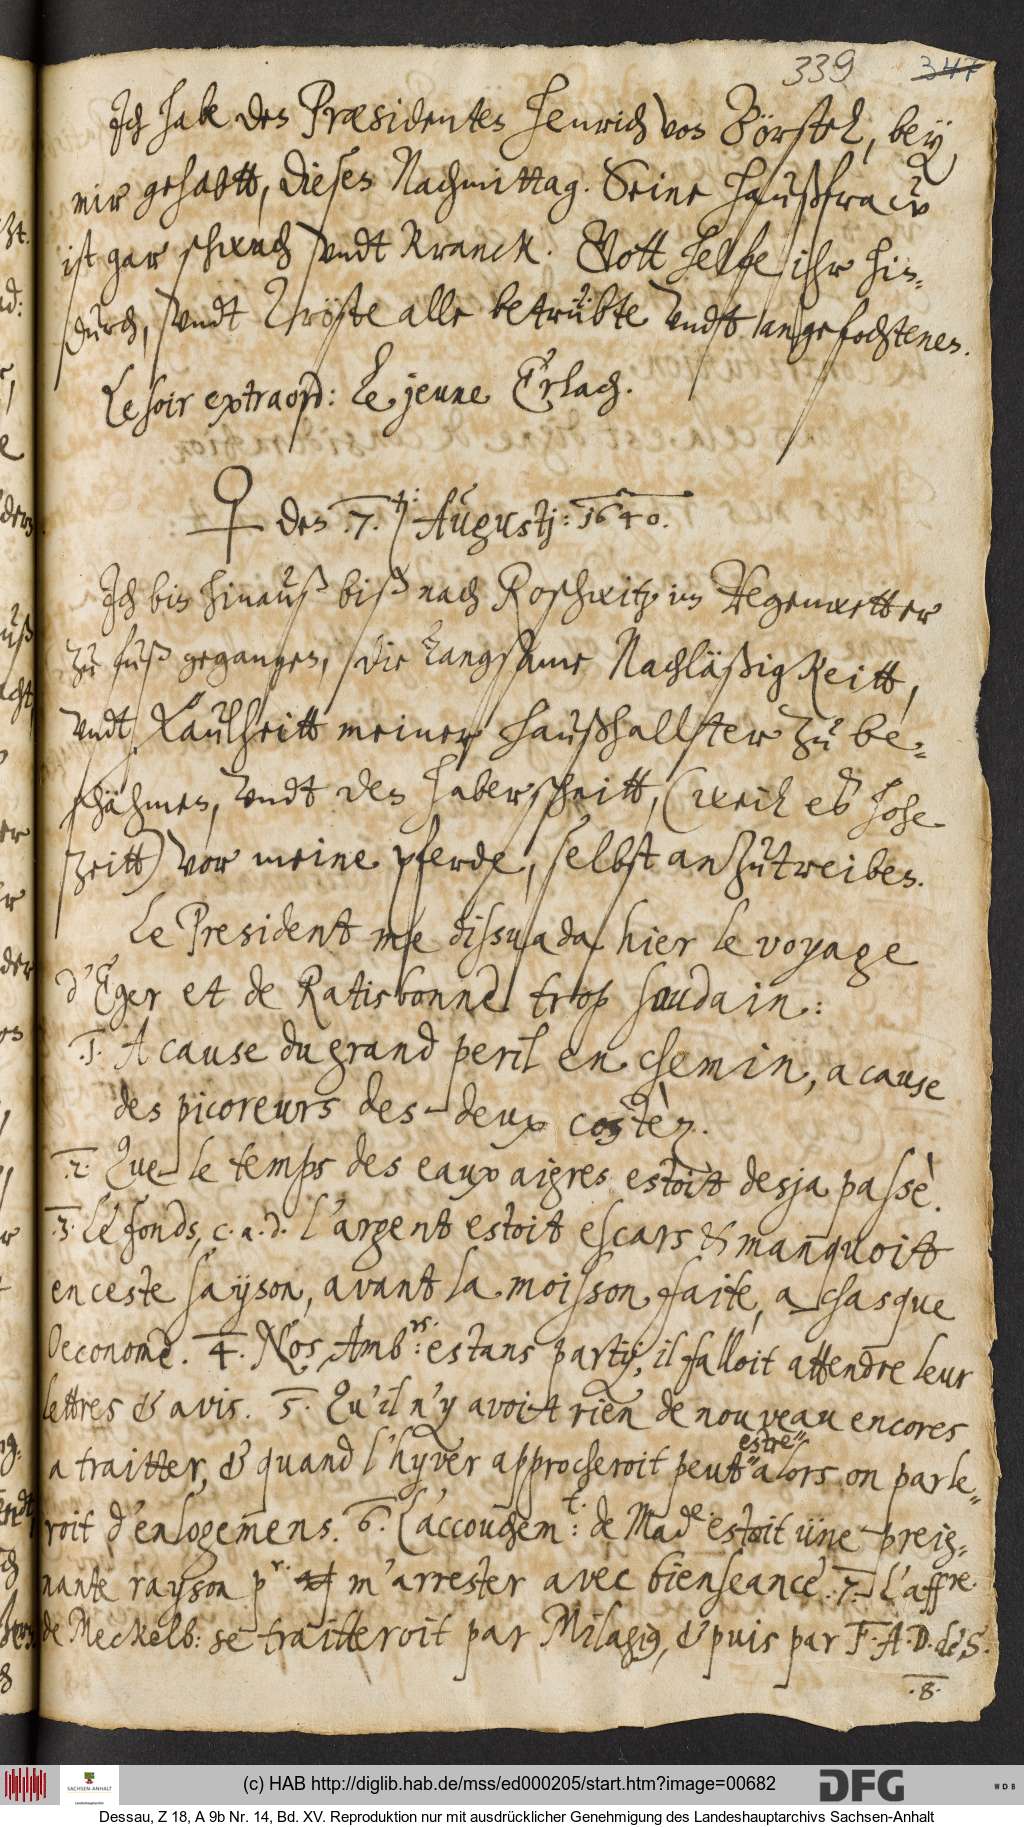 339 347
Ich habe den Præsidenten Henrich von Börstel, beÿ
mir gehabtt, diesen Nachmittag. Seine haußfraw
ist gar schwach vndt kranck. Gott helfe ihr hin-
durch, vndt tröste alle betrübte vndt angefochtenen.
Le soir extraord: Le jeune Erlach.
♀ den .7. Augustj: 1640.
Ich bin hinauß biß nach Roschwitz im Regenwetter
zu fuß gegangen, die langsame Nachläßigkeitt,
vndt Faulheitt meiner haußhallter zu be-
schähmen, vndt den haberschnitt, (weil es hohe
zeitt) vor meine pferde, selbst anzutreiben.
Le President me dissuada hier le voyage
d'Eger et de Ratisbonne trop soudain:
.1. A cause du grand peril en chemin, a cause
des picoreurs des-deux costèz.
.2. Que le temps des eaux aigres estoit desja passè.
.3. Le fonds, c. a. d. l'argent estoit escars & manquoit
en ceste sayson, avant la moisson faite, a chasque
Oeconome. 4. Nos Amb.rs: estans partij, il falloit attendre leur
lettres & avis. 5. Qu'il n'y avoit rien de nouveau encores
a traitter, & quand l'hyver approcheroit peut estre alors on parle-
roit d'enlogemens. 6. L'accouchem.t: de Mad.e estoit üne preig-
nante rayson p.r m'arrester avec bienseance. .7. L'aff.re
de Meckelb: se traitteroit par Milagiq, & puis par F. A. D. de S.
.8.
(c) HAB http://diglib.hab.de/mss/ed000205/start.htm?image=00682
SACHSEN-ANHALT
Landeshauptarchiv
DFG
WDB
Dessau, Z 18, A 9b Nr. 14, Bd. XV. Reproduktion nur mit ausdrücklicher Genehmigung des Landeshauptarchivs Sachsen-Anhalt